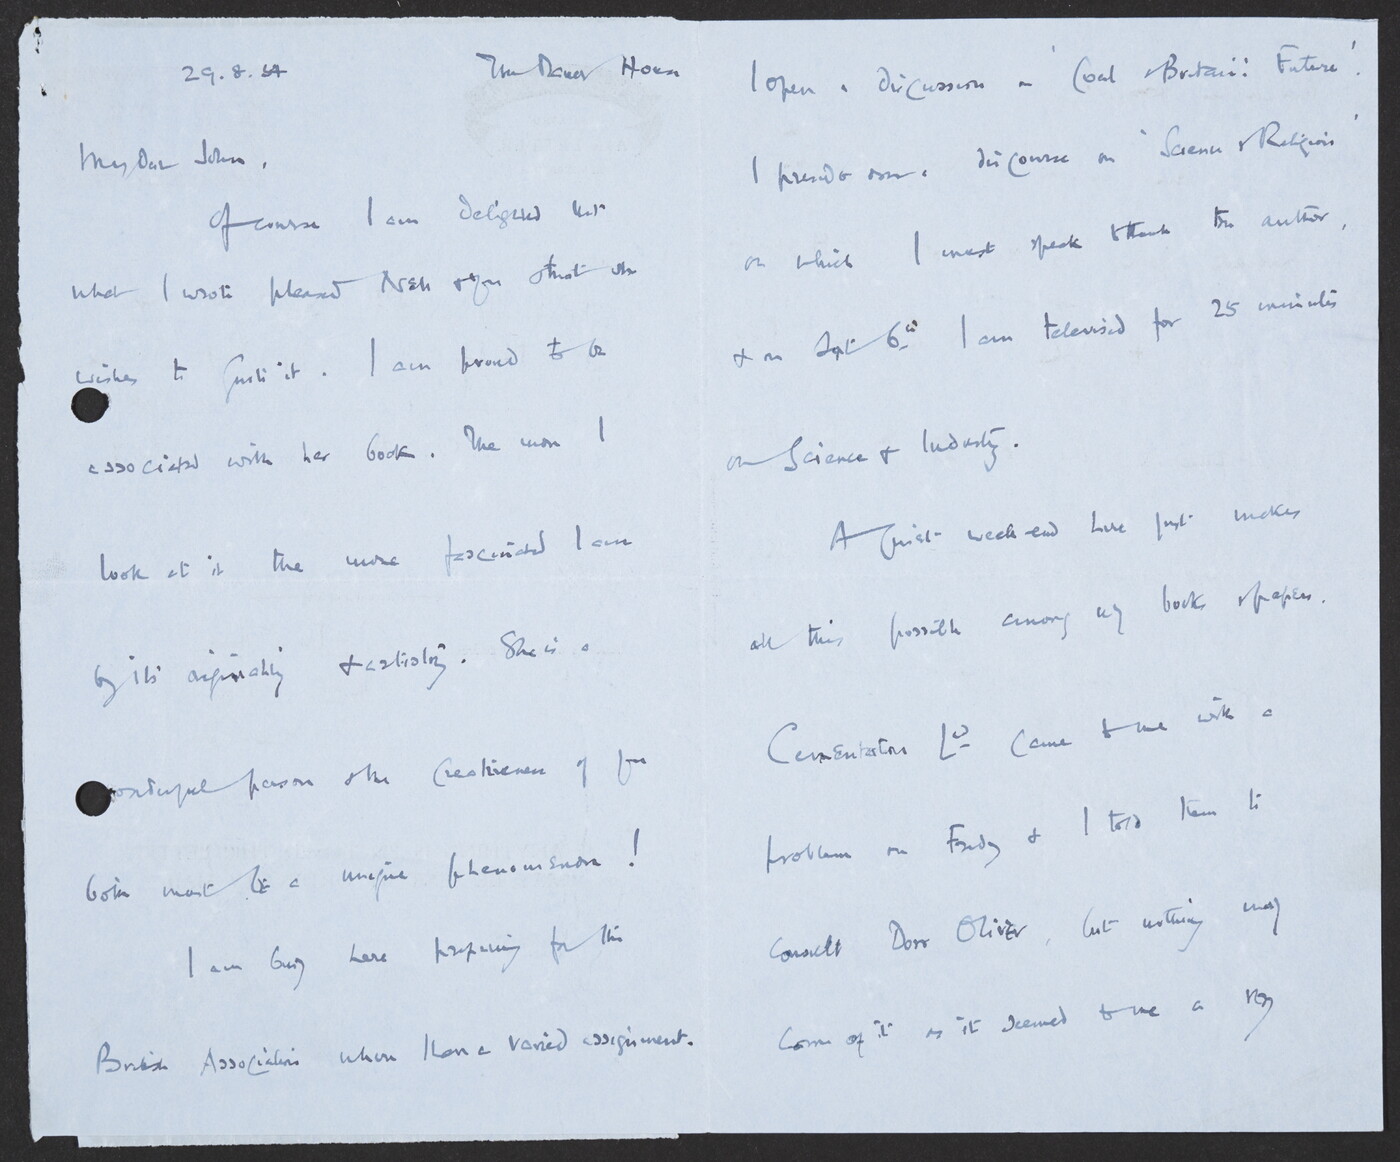 29.8.54 The Manor House
My Dear John,
Of course I am delighted that
what I wrote pleased Nell & you & that she
wishes to quote it. I am proud to be
associated with her book. The more I
look at it the more fascinated I am
by its originality & artistry. She is a
wonderful person & the creativeness of you
both must be a unique phenomenon!
I am busy here preparing for the
British Association where I have a varied assignment.
I open a discussion on 'Coal & Britain's Future'.
I preside over a discourse on 'Science & Religion'
on which I must speak to thank the author,
& on Sept 6th I am televised for 25 minutes
on Science & Industry.
A quiet week-end here just makes
all this possible among my books & papers.
Cementation Ltd came to me with a
problem on Friday & I told them to
consult Dorr Oliver, but nothing may
come of it as it seemed to me a very